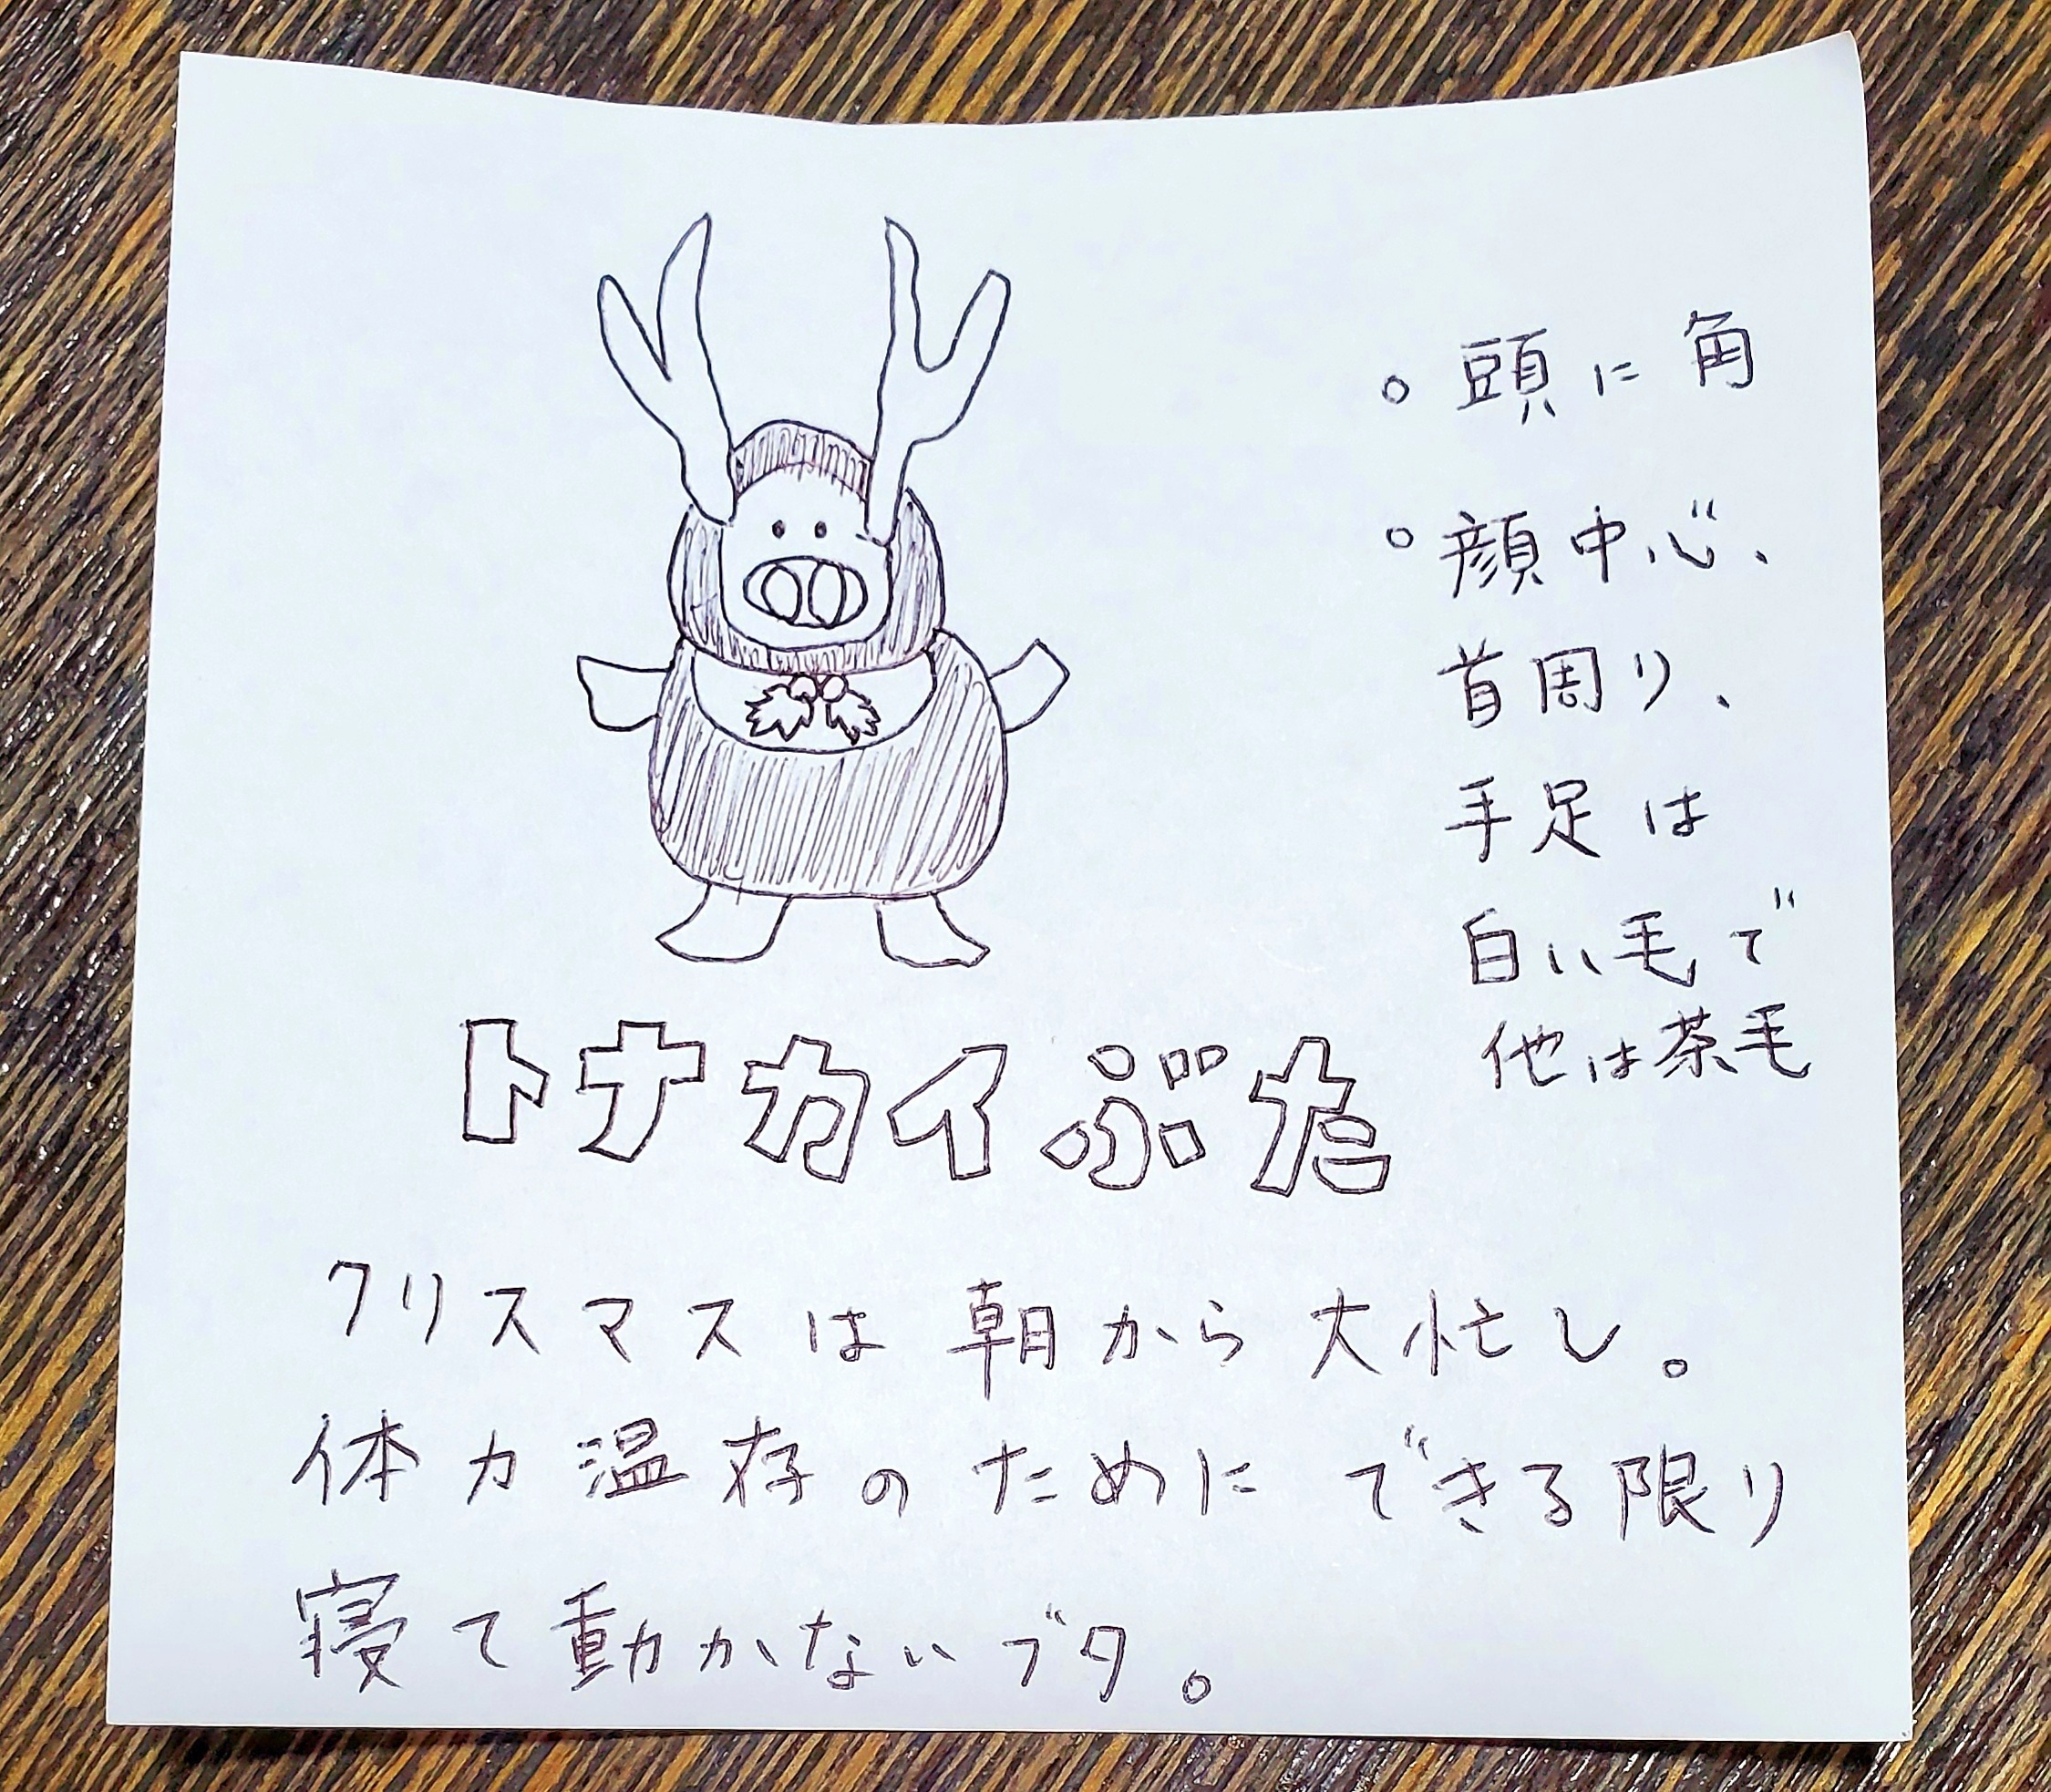 。頭に角
。顔中心、
首周り、
手足は
白い毛で
他は茶毛
トナカイぶた
クリスマスは朝から大忙し。
体力温存のためにできる限り
寝て動かないブタ。